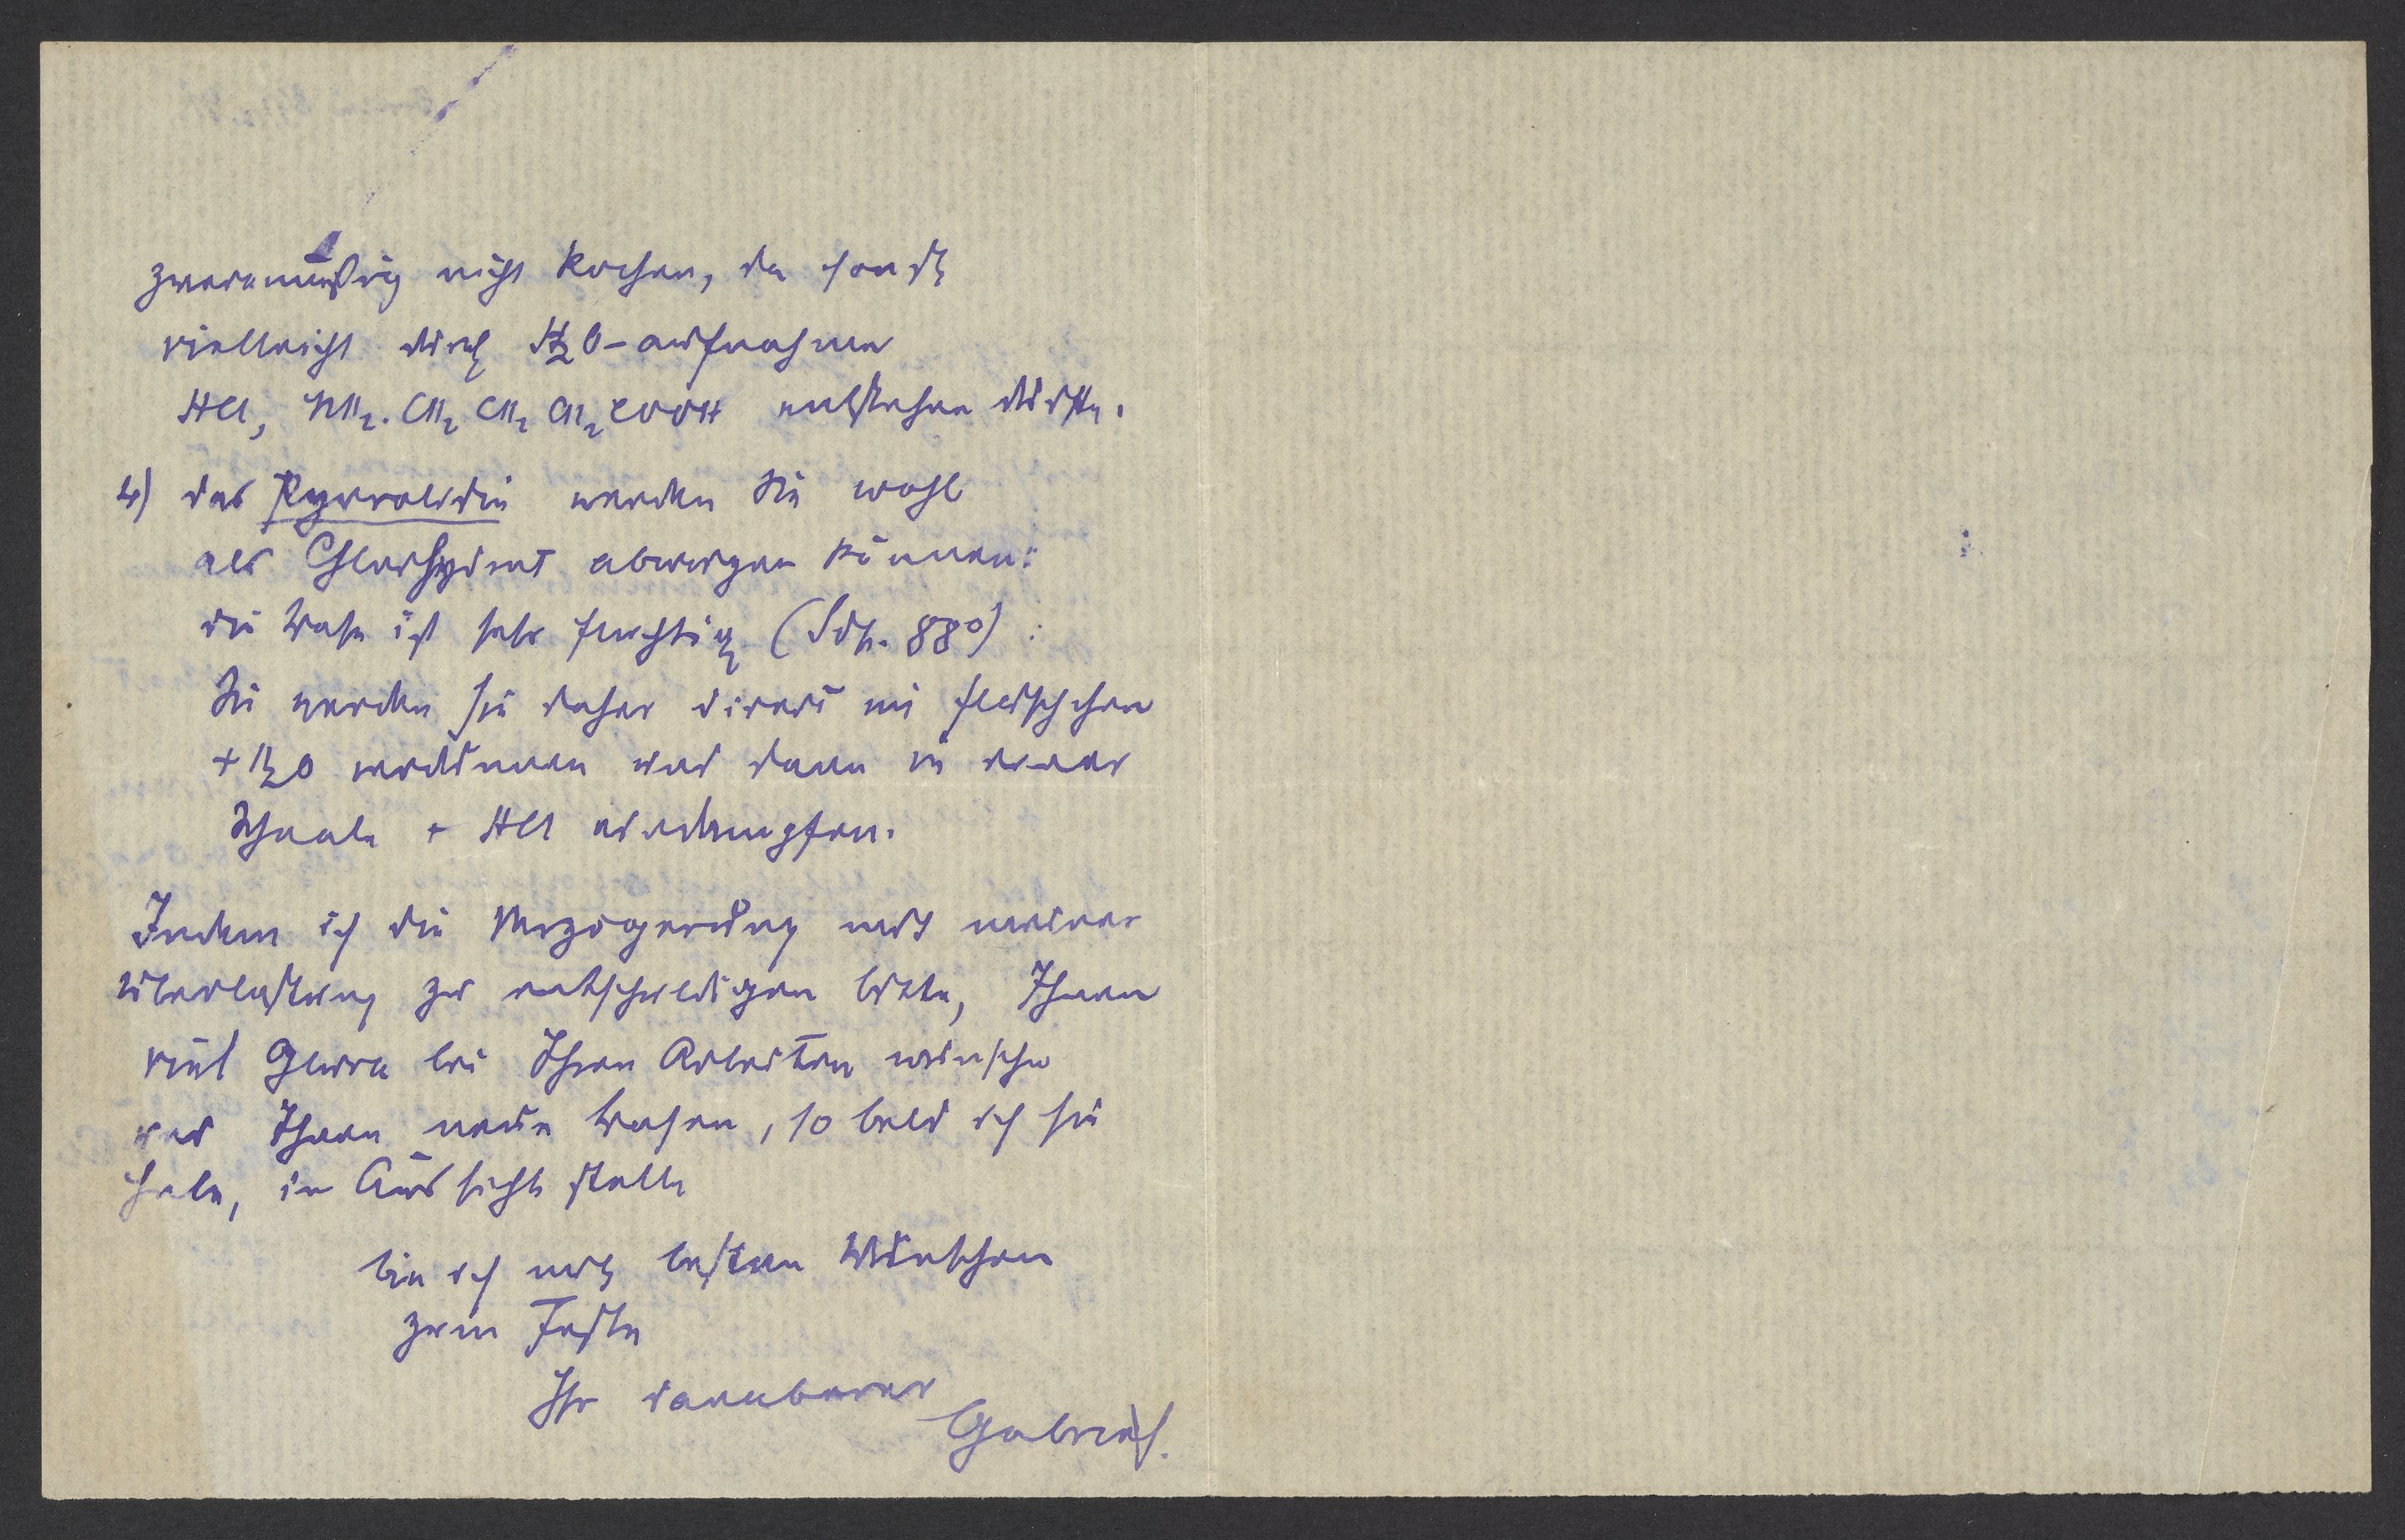 zweckmäßig nicht kochen, da sonst
vielleicht durch H2O-aufnahme
HCl, NH2.CH2 CH2 CH2 COOH entstehen dürfte.
4) das Pyrrolidin werden Sie wohl
als Chlorhydrat abwiegen können:
die Base ist sehr fluchtig (Sdp. 88°):
Sie werden sie daher direct im fläschchen
+ H2O verdünnen und dann in einer
Schaale + HCl eindampfen.
Indem ich die Verzögerung mit meiner
Überlastung zu entschuldigen bitte, Ihnen
viel Glück bei Ihren Arbeiten wünsche
und Ihnen neue Basen, so bald ich sie
habe, in Aussicht stelle
bin ich mit besten Wünschen
zum Feste
Ihr dankbarer
Gabriel.